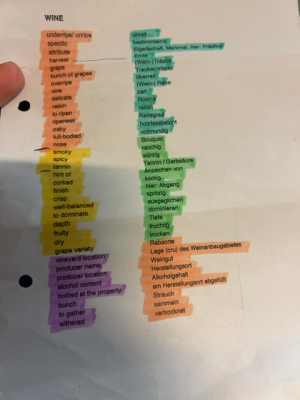 WINE
underripe/ unripe
specific
attribute
harvest
grape
bunch of grapes
overripe
vine
delicate
raisin
to ripen
ripeness
oaky
full-bodied
nose
smoky
spicy
tannin
hint of
corked
finish
crisp
well-balanced
to dominate
depth
fruity
dry
grape variety
vineyard location
producer name
producer location
alcohol content
bottled at the property
bunch
to gather
withered
unreif
bestimmte/s
Eigenschaft, Merkmal, hier: Prädikat
Ernte
(Wein-)Traube
Traube(nrispe)
überreif
(Wein-) Rebe
zart
Rosine
reifen
Reifegrad
holzfassbetont
vollmundig
Bouquet
rauchig
würzig
Tannin / Gerbsäure
Anzeichen von
korkig
hier: Abgang
spritzig
ausgeglichen
dominieren
Tiefe
fruchtig
trocken
Rebsorte
Lage (cru) des Weinanbaugebietes
Weingut
Herstellungsort
Alkoholgehalt
am Herstellungsort abgefüllt
Strauch
sammeln
vertrocknet